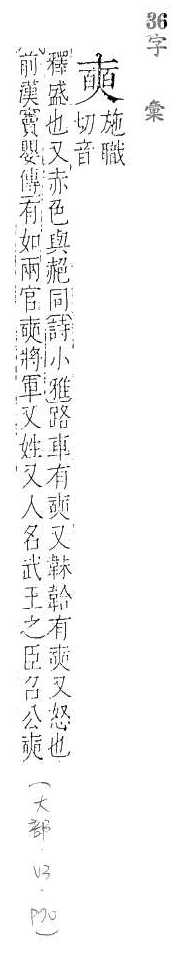 36 字彙
奭 施職切音
釋盛也又赤色與赩同詩小雅路車有奭又韎韐有奭又怒也
前漢竇嬰傳有如兩宮奭將軍又姓又人名武王之臣召公奭
(大部·V3·P70)